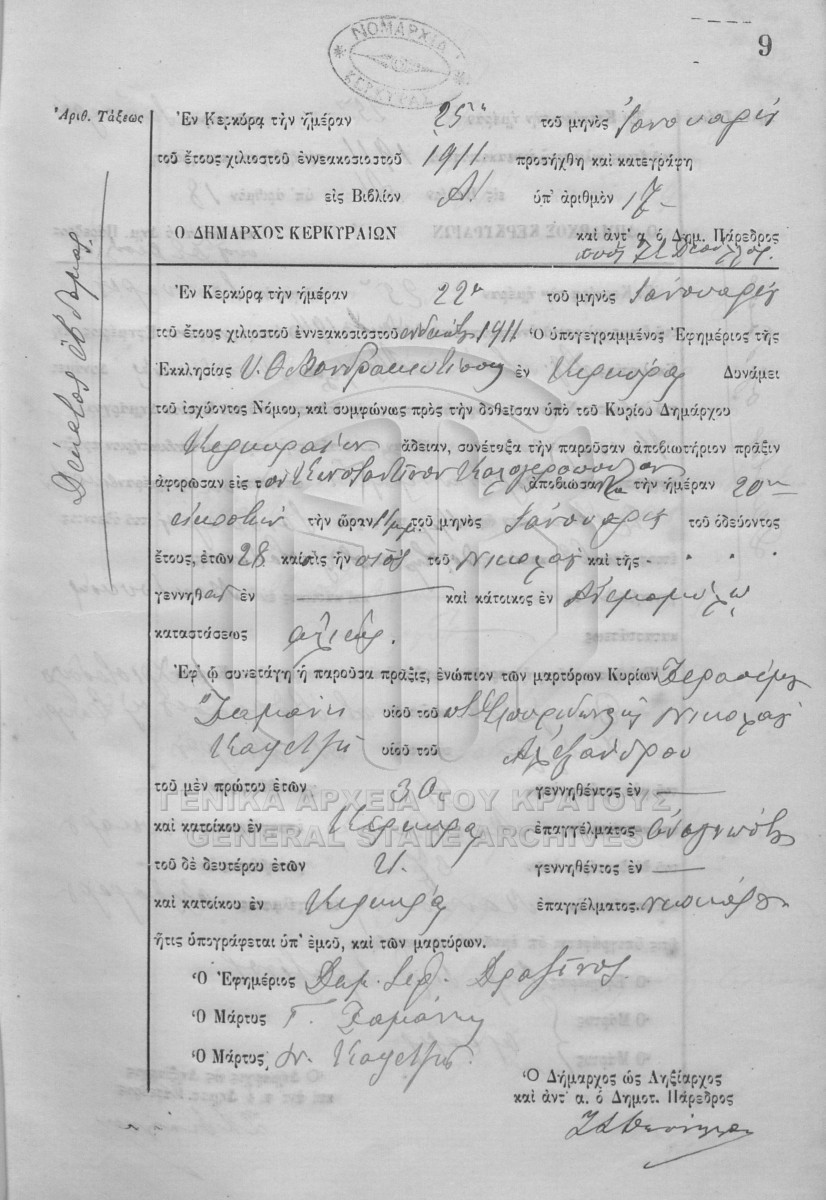 9
ΝΟΜΑΡΧΙΑ
ΚΕΡΚΥΡΑΣ
Ἀριθ. Τάξεως
Δέκατος ἕβδομος
Ἐν Κερκύρᾳ τὴν ἡμέραν 25ην τοῦ μηνὸς Ἰανουαρίου
τοῦ ἔτους χιλιοστοῦ ἐννεακοσιοστοῦ 1911 προσήχθη καὶ κατεγράφη
εἰς Βιβλίον Α. ὑπ' ἀριθμὸν 17
Ο ΔΗΜΑΡΧΟΣ ΚΕΡΚΥΡΑΙΩΝ καὶ ἀντ' α. ὁ Δημ. Πάρεδρος
Ἐν Κερκύρᾳ τὴν ἡμέραν 22αν τοῦ μηνὸς Ἰανουαρίου
τοῦ ἔτους χιλιοστοῦ ἐννεακοσιοστοῦ ἑνδεκάτου 1911 Ὁ ὑπογεγραμμένος Ἐφημέριος τῆς
Ἐκκλησίας Υ. Θ. ἐν Κερκύρᾳ Δυνάμει
τοῦ ἰσχύοντος Νόμου, καὶ συμφώνως πρὸς τὴν δοθεῖσαν ὑπὸ τοῦ Κυρίου Δημάρχου
Κερκυραίων ἄδειαν, συνέταξα τὴν παροῦσαν ἀποβιωτήριον πρᾶξιν
ἀφορῶσαν εἰς τὸν Κωνσταντῖνον Καλογερόπουλον ἀποβιώσαντα τὴν ἡμέραν 20ην
εἰκοστὴν τὴν ὥραν 11 μμ. τοῦ μηνὸς Ἰανουαρίου τοῦ ὁδεύοντος
ἔτους, ἐτῶν 28 καὶ τις ἦν υἱὸς τοῦ Νικολάου καὶ τῆς - " " "
γεννηθεὶς ἐν — καὶ κάτοικος ἐν Ἀνεμομύλῳ
καταστάσεως ἁλιεύς.
Ἐφ' ᾧ συνετάγη ἡ παροῦσα πρᾶξις, ἐνώπιον τῶν μαρτύρων Κυρίων Γερασίμου
Ζαμάνη υἱοῦ τοῦ Σπυρίδωνος Νικολάου
Καφετζῆ υἱοῦ τοῦ Ἀλεξάνδρου
τοῦ μὲν πρώτου ἐτῶν 30 γεννηθέντος ἐν —
καὶ κατοίκου ἐν Κερκύρᾳ ἐπαγγέλματος
τοῦ δὲ δευτέρου ἐτῶν γεννηθέντος ἐν —
καὶ κατοίκου ἐν Κερκύρᾳ ἐπαγγέλματος νεωκόρου
ἥτις ὑπογράφεται ὑπ' ἐμοῦ, καὶ τῶν μαρτύρων.
Ὁ Ἐφημέριος
Ὁ Μάρτυς Γ. Ζαμάνης
Ὁ Μάρτυς Ν. Καφετζῆς
Ὁ Δήμαρχος ὡς Ληξίαρχος
καὶ ἀντ' α. ὁ Δημοτ. Πάρεδρος
ΓΕΝΙΚΑ ΑΡΧΕΙΑ ΤΟΥ ΚΡΑΤΟΥΣ
GENERAL STATE ARCHIVES